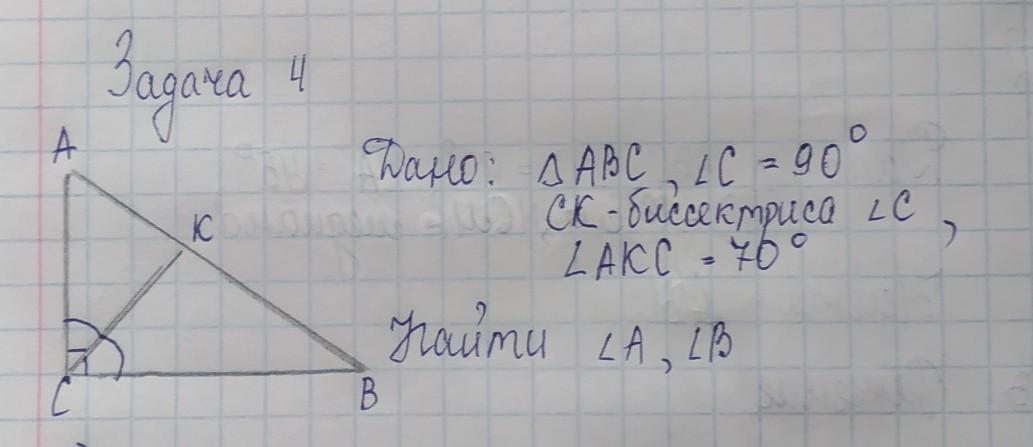 Задача 4
A
Дано: △ABC, ∠C = 90°
K
CK - биссектриса ∠C,
∠AKC = 70°
Найти ∠A, ∠B
C
B